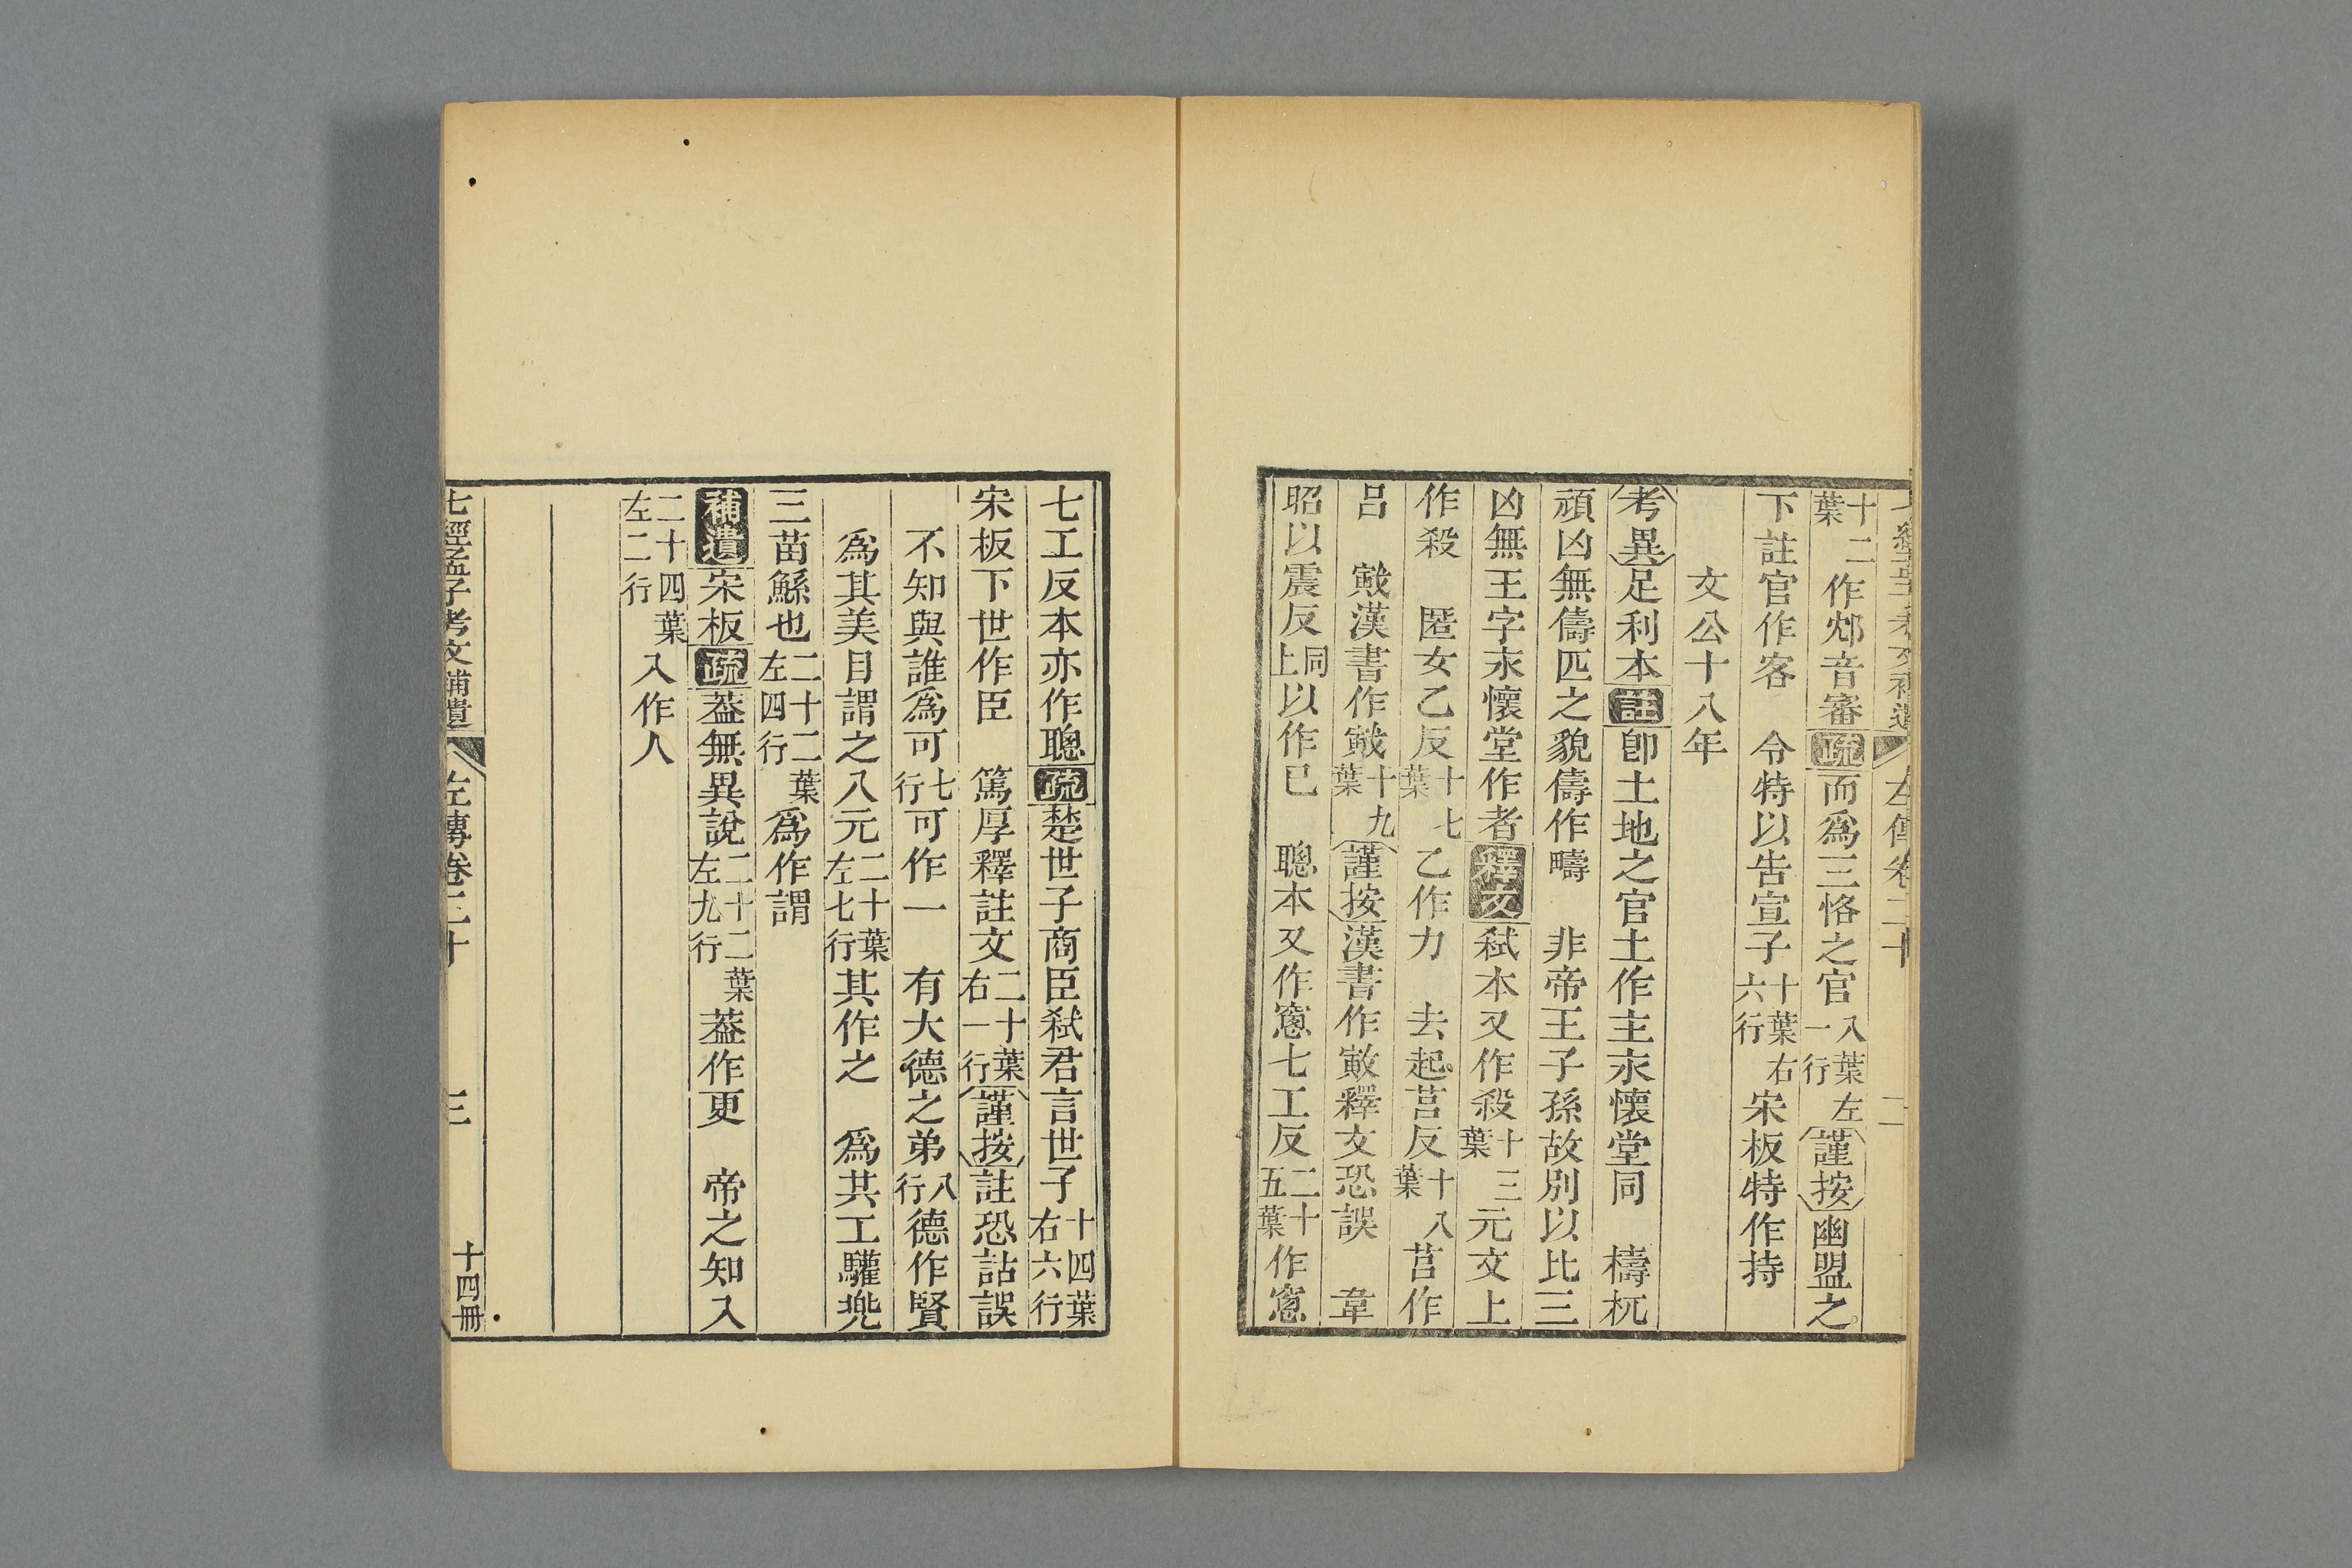 十二葉作郕音審疏而爲三恪之官八葉左一行謹按幽盟之
下註官作客　令特以告宣子十葉右六行宋板特作持
文公十八年
考異足利本註卽土地之官土作主永懷堂同　檮杌
頑凶無儔匹之貌儔作疇　非帝王子孫故別以比三
凶無王字永懷堂作者釋文弑本又作殺十三葉元文上
作殺　匿女乙反十七葉乙作力　去起莒反十八葉莒作
呂　戭漢書作戭十九葉謹按漢書作𢾾釋文恐誤　韋
昭以震反上同以作巳　聰本又作窻七工反二十五葉作窻
七工反本亦作聰疏楚世子商臣弑君言世子十四葉右六行
宋板下世作臣　篤厚釋註文二十葉右一行謹按註恐詁誤
不知與誰爲可七行可作一　有大德之弟八行德作賢
爲其美目謂之八元二十葉左七行其作之　爲共工驩兠
三苗鯀也二十二葉左四行爲作謂
補遺宋板疏葢無異說二十二葉左九行葢作更　帝之知入
二十四葉左二行入作人
七經孟子考文補遺　左傳卷二十　三　十四冊